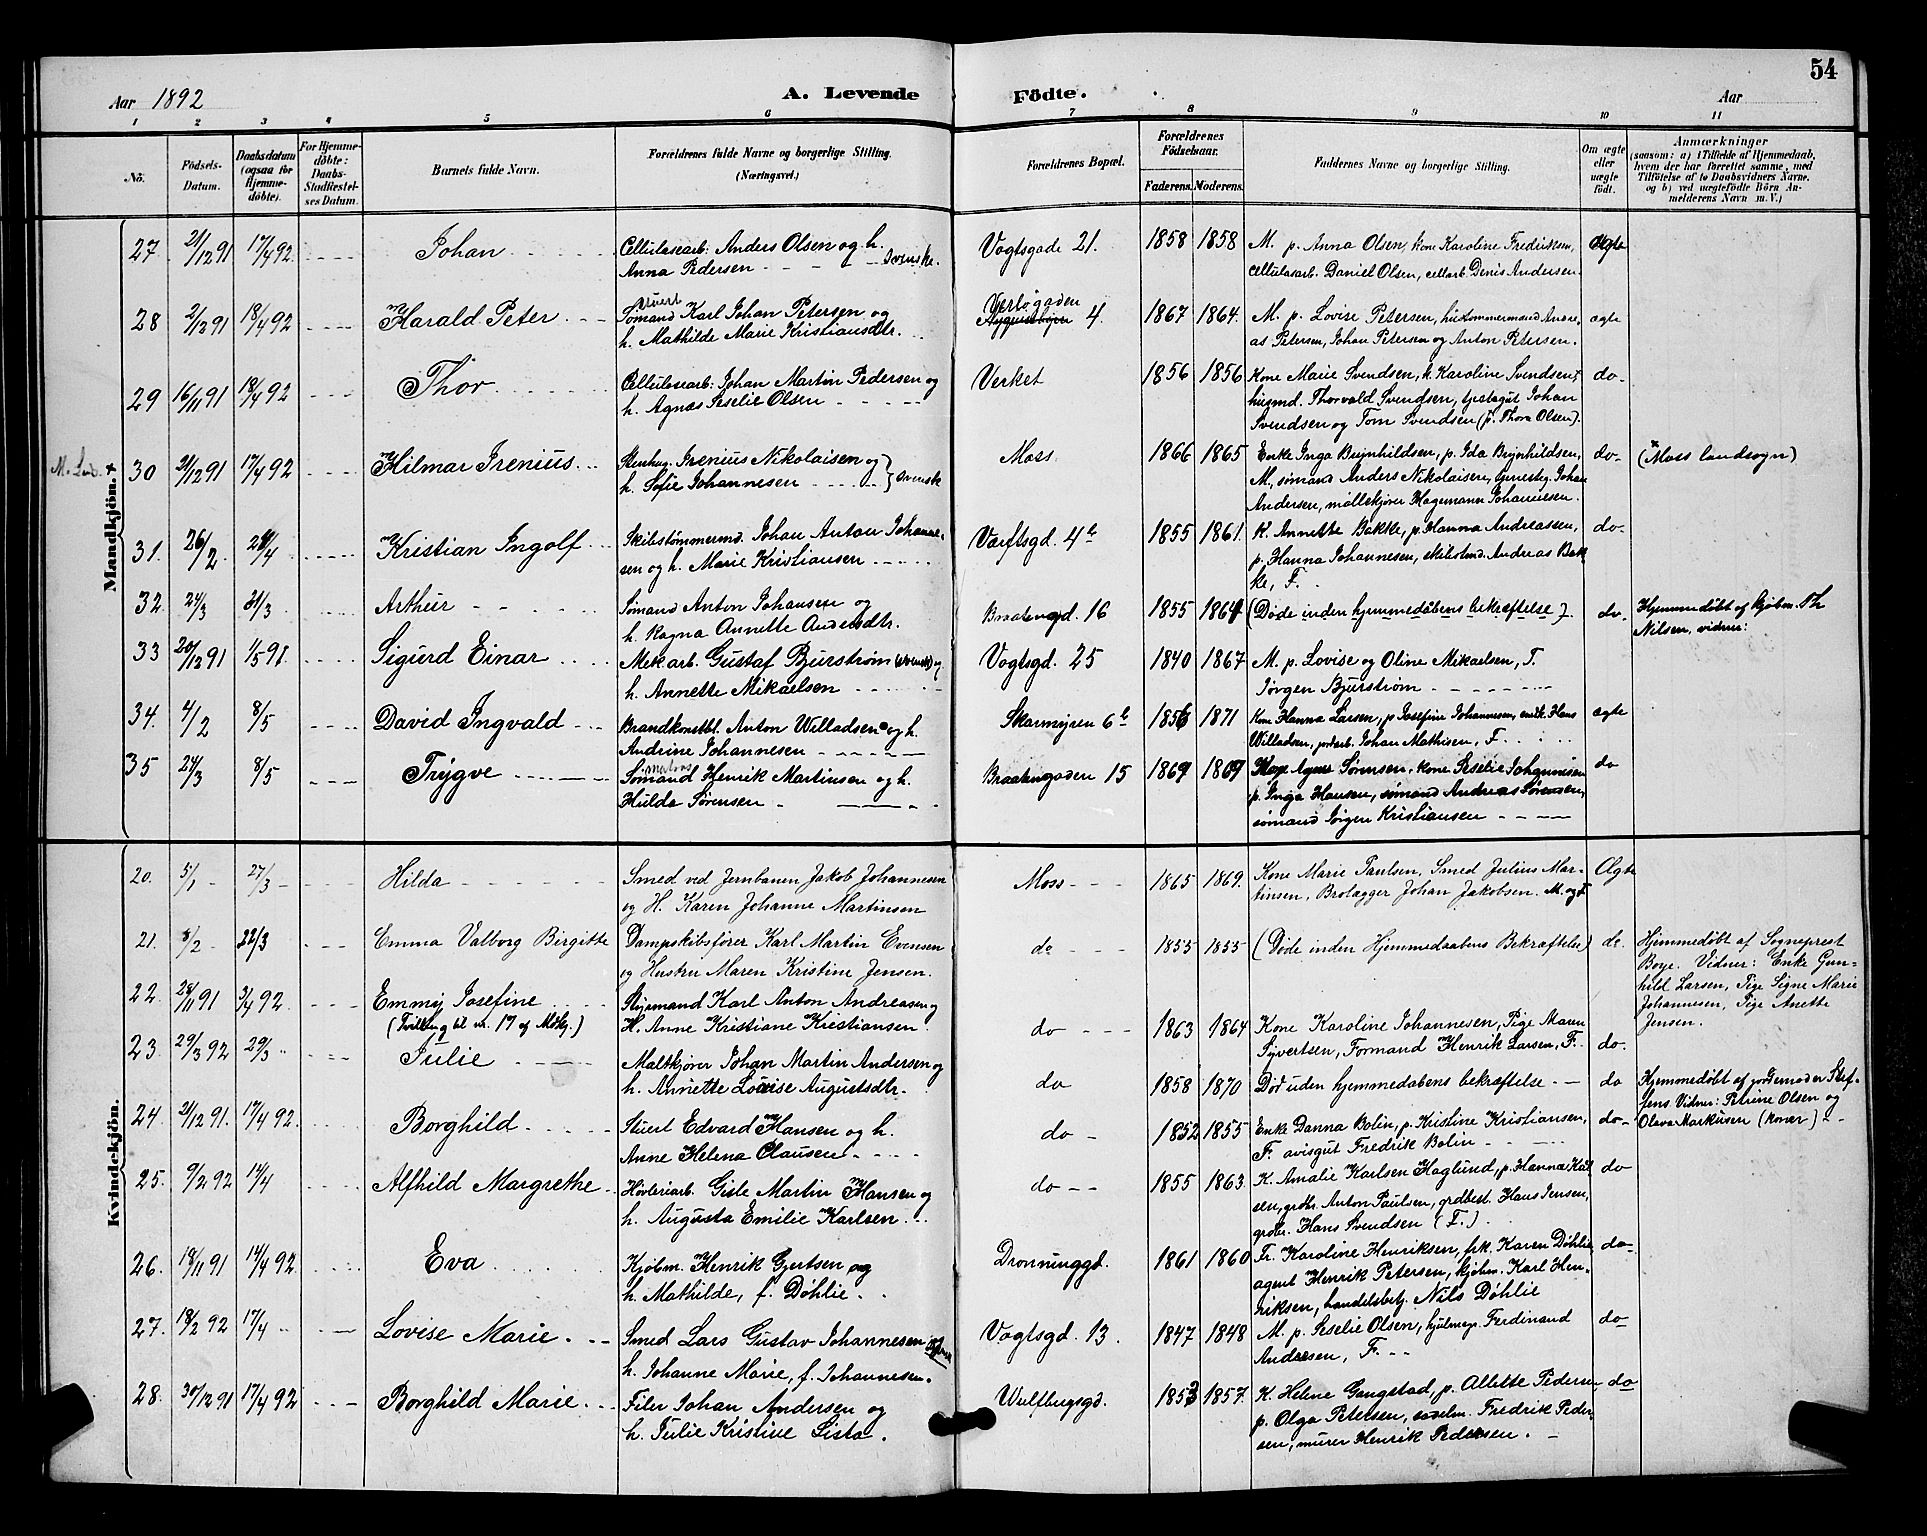 54
Aar 1892 A. Levende Födte. Aar
1 2 3 4 5 6 7 8 9 10 11
Nö.
Födsels-Datum.
Daabsdatum (ogsaa for Hjemme-döbte).
For Hjemme-döbte: Daabs-Stadfæstel-ses Datum.
Barnets fulde Navn.
Forældrenes fulde Navne og borgerlige Stilling.
(Næringsvei.)
Forældrenes Bopæl.
Forældrenes Födselsaar.
Faderens. Moderens.
Faddernes Navne og borgerlige Stilling.
Om ægte eller uægte födt.
Anmærkninger
(saasom: a) i Tilfælde af Hjemmedaab,
hvem der har forrettet samme, med
Tilföielse af to Daabsvidners Navne.
og b) ved uægtefödte Börn An-
melderens Navn m. V.)
Mandkjön.
27 21/12 91 17/4 92 Johan Cellulosearb. Anders Olsen og h. Vogtsgade 21. 1858 1858 M. p. Anna Olsen, kone Karoline Fredriksen, ægte
Anna Pedersen svenske. cellulosarb. Daniel Olsen, cellarb. Denis Andersen
28 2/12 91 18/4 92 Harald Peter Stuert Sømand Karl Johan Petersen og Verlegaden 4. 1867 1864. M. p. Lovise Petersen, hustømmermand Andre- ægte
h. Mathilde Marie Kristiansdtr. as Petersen, Johan Petersen og Anton Petersen.
29 16/11 91 18/4 92 Thor Cellulosearb: Johan Martin Pedersen og Verket 1856 1856 Kone Marie Svendsen, k. Karoline Svendsen, do-
h. Agnes Seselie Olsen husmd. Thorvald Svendsen, Johan
Svendsen og Tom Svendsen (p. Thora Olsen).
M. Lds. + 30 21/12 91 17/4 92 Hilmar Irenius Stenhug. Irenius Nikolaisen og Moss 1866 1865 Enke Inga Brynhildsen, p. Ida Brynhildsen, do- (Moss landsogn)
h. Sofie Johannesen svensk M., sømand Anders Nikolaisen, Johan
Andersen, møllekjører Hagemann Johannesen.
31. 26/2 24/4 Kristian Ingolf Skibstømmermd. Johan Anton Johanne- Værftsgd. 4b 1855 1861. K. Annette Bakke, p. Hanna Andreassen, do-
sen og h. Marie Kristiansen p. Hanna Johannesen, skibstmd. Andreas Bak-
ke, F.
32. 24/3 31/3 Arthur Sømand Anton Johansen og Braatengd. 16 1855 1864 (Døde inden hjemmedåbens bekræftelse) do- Hjemmedøbt af kjøbm. Th
h. Ragna Annette Andersdtr. Nilsen, vidner:
33 20/12 91 1/5 91. Sigurd Einar Mek arb. Gustaf Bjurstrøm (svensk) og Vogtsgd. 25 1840 1867 M. p. Lovise og Oline Mikaelsen, F.
h. Annette Mikaelsen Jørgen Bjurstrøm
34. 4/2 8/5 David Ingvald Brandkonstbl. Anton Willadsen og h. Skarmyren 6b 1856 1871 Kone Hanna Larsen, p Josefine Johannesen, Hans ægte
Andrine Johannesen Willadsen, jordarb. Johan Mathisen, F.
35 24/3 8/5 Trygve matros Sømand Henrik Martinsen og h. Braatengaden 15 1869 1869 Kone Agnes Sørensen, kone Seselie Johannesen do
Hulda Sørensen p. Inga Hansen, sømand Andreas Sørensen,
sømand Jørgen Kristiansen
Kvindekjön.
20. 5/1 27/3 Hilda Smed ved Jernbanen Jakob Johannesen Moss 1865 1869. Kone Marie Paulsen, Smed Julius Mar- Ægte
og H. Karen Johanne Martinsen tinsen, Brolægger Johan Jakobsen. M. og F
21. 8/2 22/3 Emma Valborg Birgitte Dampskibsfører Karl Martin Evensen do 1855 1855 (Døde inden Hjemmedaabens Bekræftelse) do. Hjemmedøbt af Sogneprest
og Hustru Maren Kristine Jensen. Boye. Vidner: Enke Gun-
hild Larsen, Pige Signe Marie
Johannesen, Pige Anette
Jensen.
22. 28/11 91 3/4 92. Emmy Josefine Styrmand Karl Anton Andreasen og do 1863 1864 Kone Karoline Johannesen, Pige Maren do.
(Tvilling til nr. 17 af Mdkj.) H. Anne Kristiane Kristiansen. Syvertsen, Formand Henrik Larsen, F.
23. 29/3 92 29/3 Julie Maltkjører Johan Martin Andersen og do 1858 1870 Død uden hjemmedåbens bekræftelse. do Hjemmedøbt af jordemoder Stef-
h. Annette Lovise Augustsdtr. fens. Vidner: Petrine Olsen og
Olava Markusen (Kovær)
24. 21/12 91. 17/4 92. Borghild Stuert Edvard Hansen og h. do 1852 1855 Enke Danna Bolin, p. Kristine Kristiansen, do-
Anne Helena Clausen F. avisgut Fredrik Bolin
25. 9/2 92 14/4 Alfhild Margrethe Høvleriarb. Gisle Martin Hansen og do 1855 1863. K. Amalie Karlsen Haglund, p. Hanna Karl- do
h. Augusta Emilie Karlsen sen, grdbr. Anton Paulsen, grdbest. Hans Jensen,
grdbr. Hans Svendsen (F.)
26. 18/11 91 14/4 92 Eva Kjøbm. Henrik Gjertsen og Dronninggd. 1861 1860 Fr. Karoline Henriksen, frk. Karen Döhlie, do
h. Mathilde, f. Döhlie. agent Henrik Petersen, kjøbm. Karl Hen-
riksen, handelsbetj. Nils Döhlie
27. 18/2 92 17/4 Lovise Marie Smed Lars Gustav Johannesen og Vogtsgd. 13. 1847 1848 M. p. Seselie Olsen, hjulmag. Ferdinand do
h. Johanne Marie, f. Johannesen. Andresen, F.
28. 30/12 91 17/4 92 Borghild Marie Filer Johan Andersen og Wulfbergsgd. 1853 1857. K. Helene Gangstad, p. Allette Pedersen do
h. Julie Kristine Lista. p. Olga Petersen, sadelm. Fredrik Peder-
sen, murer Henrik Pedersen.